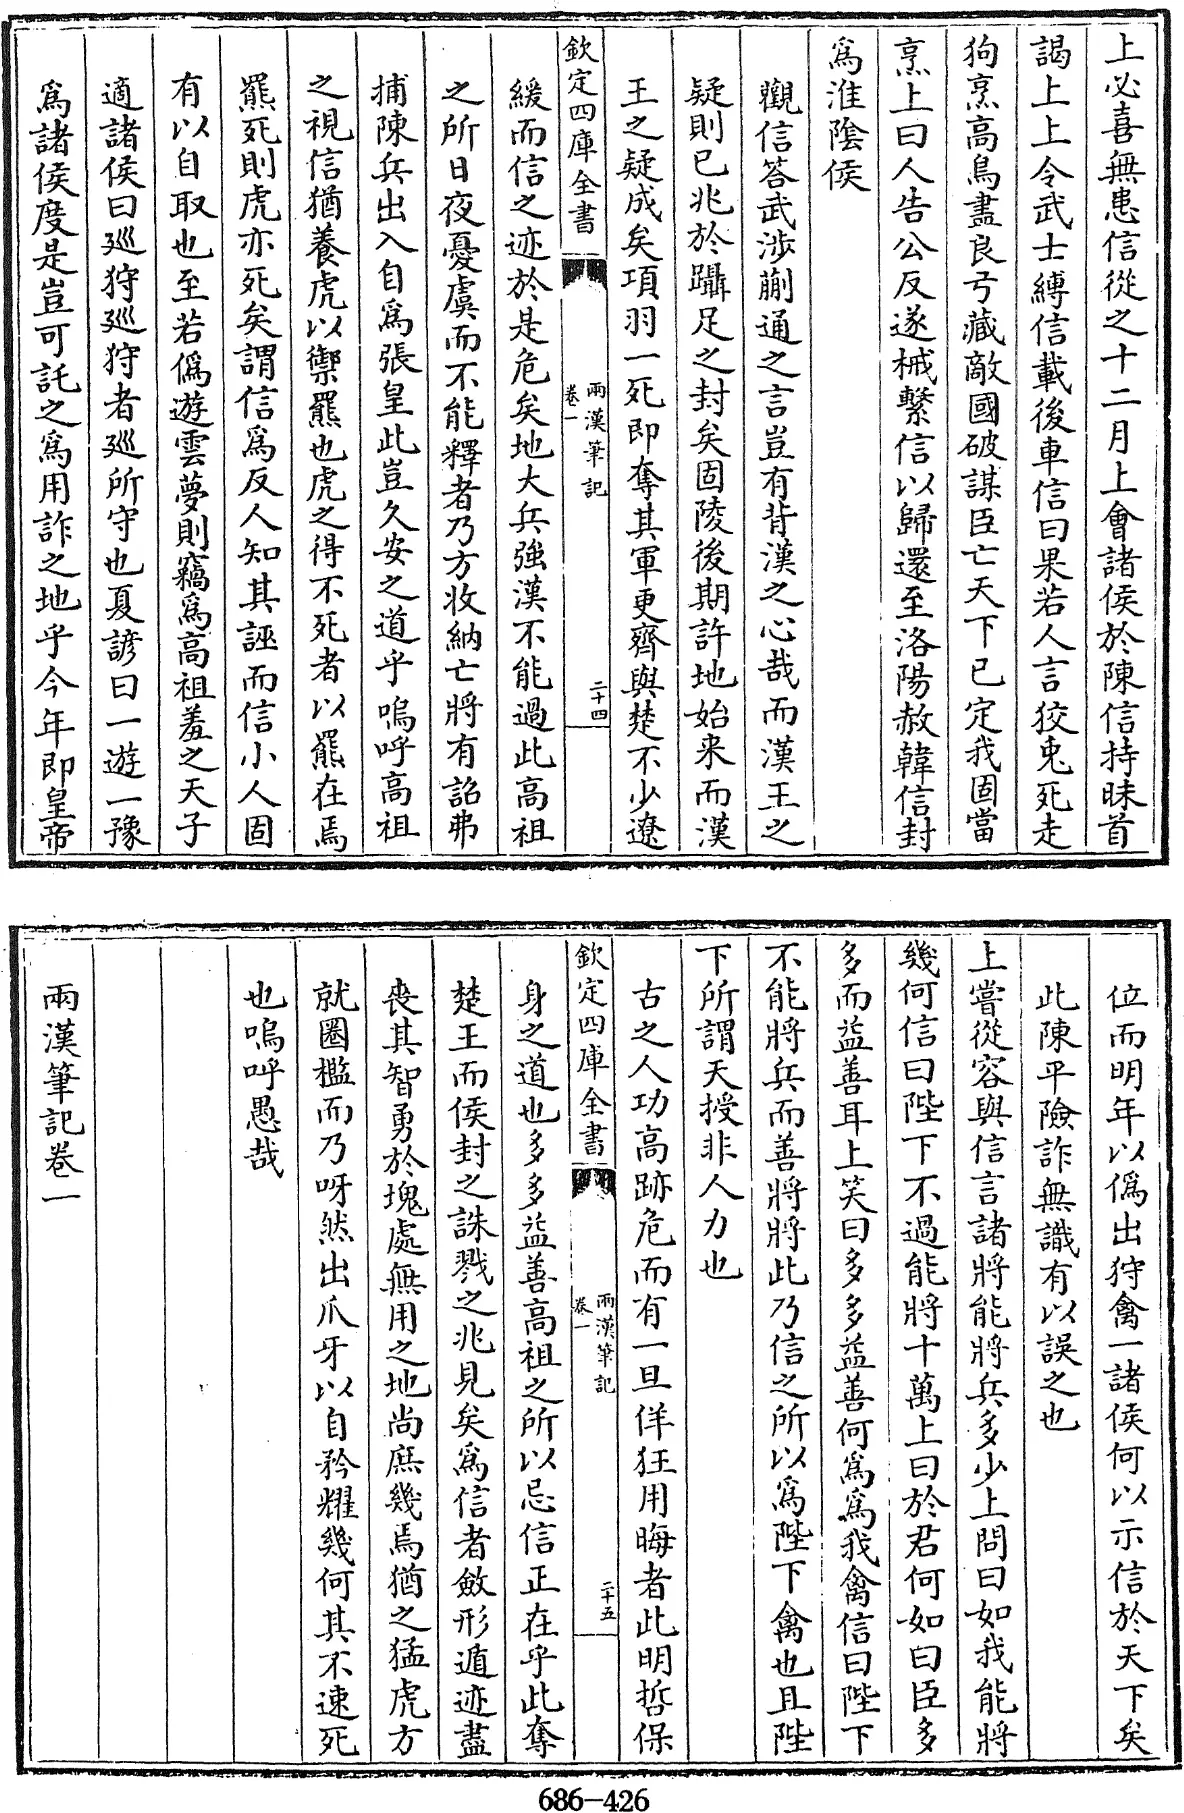 上必喜無患信從之十二月上會諸侯於陳信持昧首
謁上上令武士縛信載後車信曰果若人言狡兎死走
狗烹高鳥盡良弓藏敵國破謀臣亡天下已定我固當
烹上曰人告公反遂械繫信以歸還至洛陽赦韓信封
為淮隂侯
觀信答武涉蒯通之言豈有背漢之心哉而漢王之
疑則已兆於躡足之封矣固陵後期許地始來而漢
王之疑成矣項羽一死即奪其軍更齊與楚不少遼
欽定四庫全書
兩漢筆記
卷一
二十四
緩而信之迹於是危矣地大兵強漢不能過此高祖
之所日夜憂虞而不能釋者乃方收納亡將有詔弗
捕陳兵出入自為張皇此豈久安之道乎嗚呼高祖
之視信猶養虎以禦羆也虎之得不死者以羆在焉
羆死則虎亦死矣謂信為反人知其誣而信小人固
有以自取也至若偽遊雲夢則竊為高祖羞之天子
適諸侯曰廵狩廵狩者廵所守也夏諺曰一遊一豫
為諸侯度是豈可託之為用詐之地乎今年即皇帝
位而明年以偽出狩禽一諸侯何以示信於天下矣
此陳平險詐無識有以誤之也
上嘗從容與信言諸將能將兵多少上問曰如我能將
幾何信曰陛下不過能將十萬上曰於君何如曰臣多
多而益善耳上笑曰多多益善何為為我禽信曰陛下
不能將兵而善將將此乃信之所以為陛下禽也且陛
下所謂天授非人力也
古之人功高跡危而有一旦佯狂用晦者此明哲保
欽定四庫全書
兩漢筆記
卷一
二十五
身之道也多多益善高祖之所以忌信正在乎此奪
楚王而侯封之誅戮之兆見矣為信者斂形遁迹盡
喪其智勇於塊處無用之地尚庶幾焉猶之猛虎方
就圈檻而乃呀然出爪牙以自矜耀幾何其不速死
也嗚呼愚哉
兩漢筆記卷一
686-426